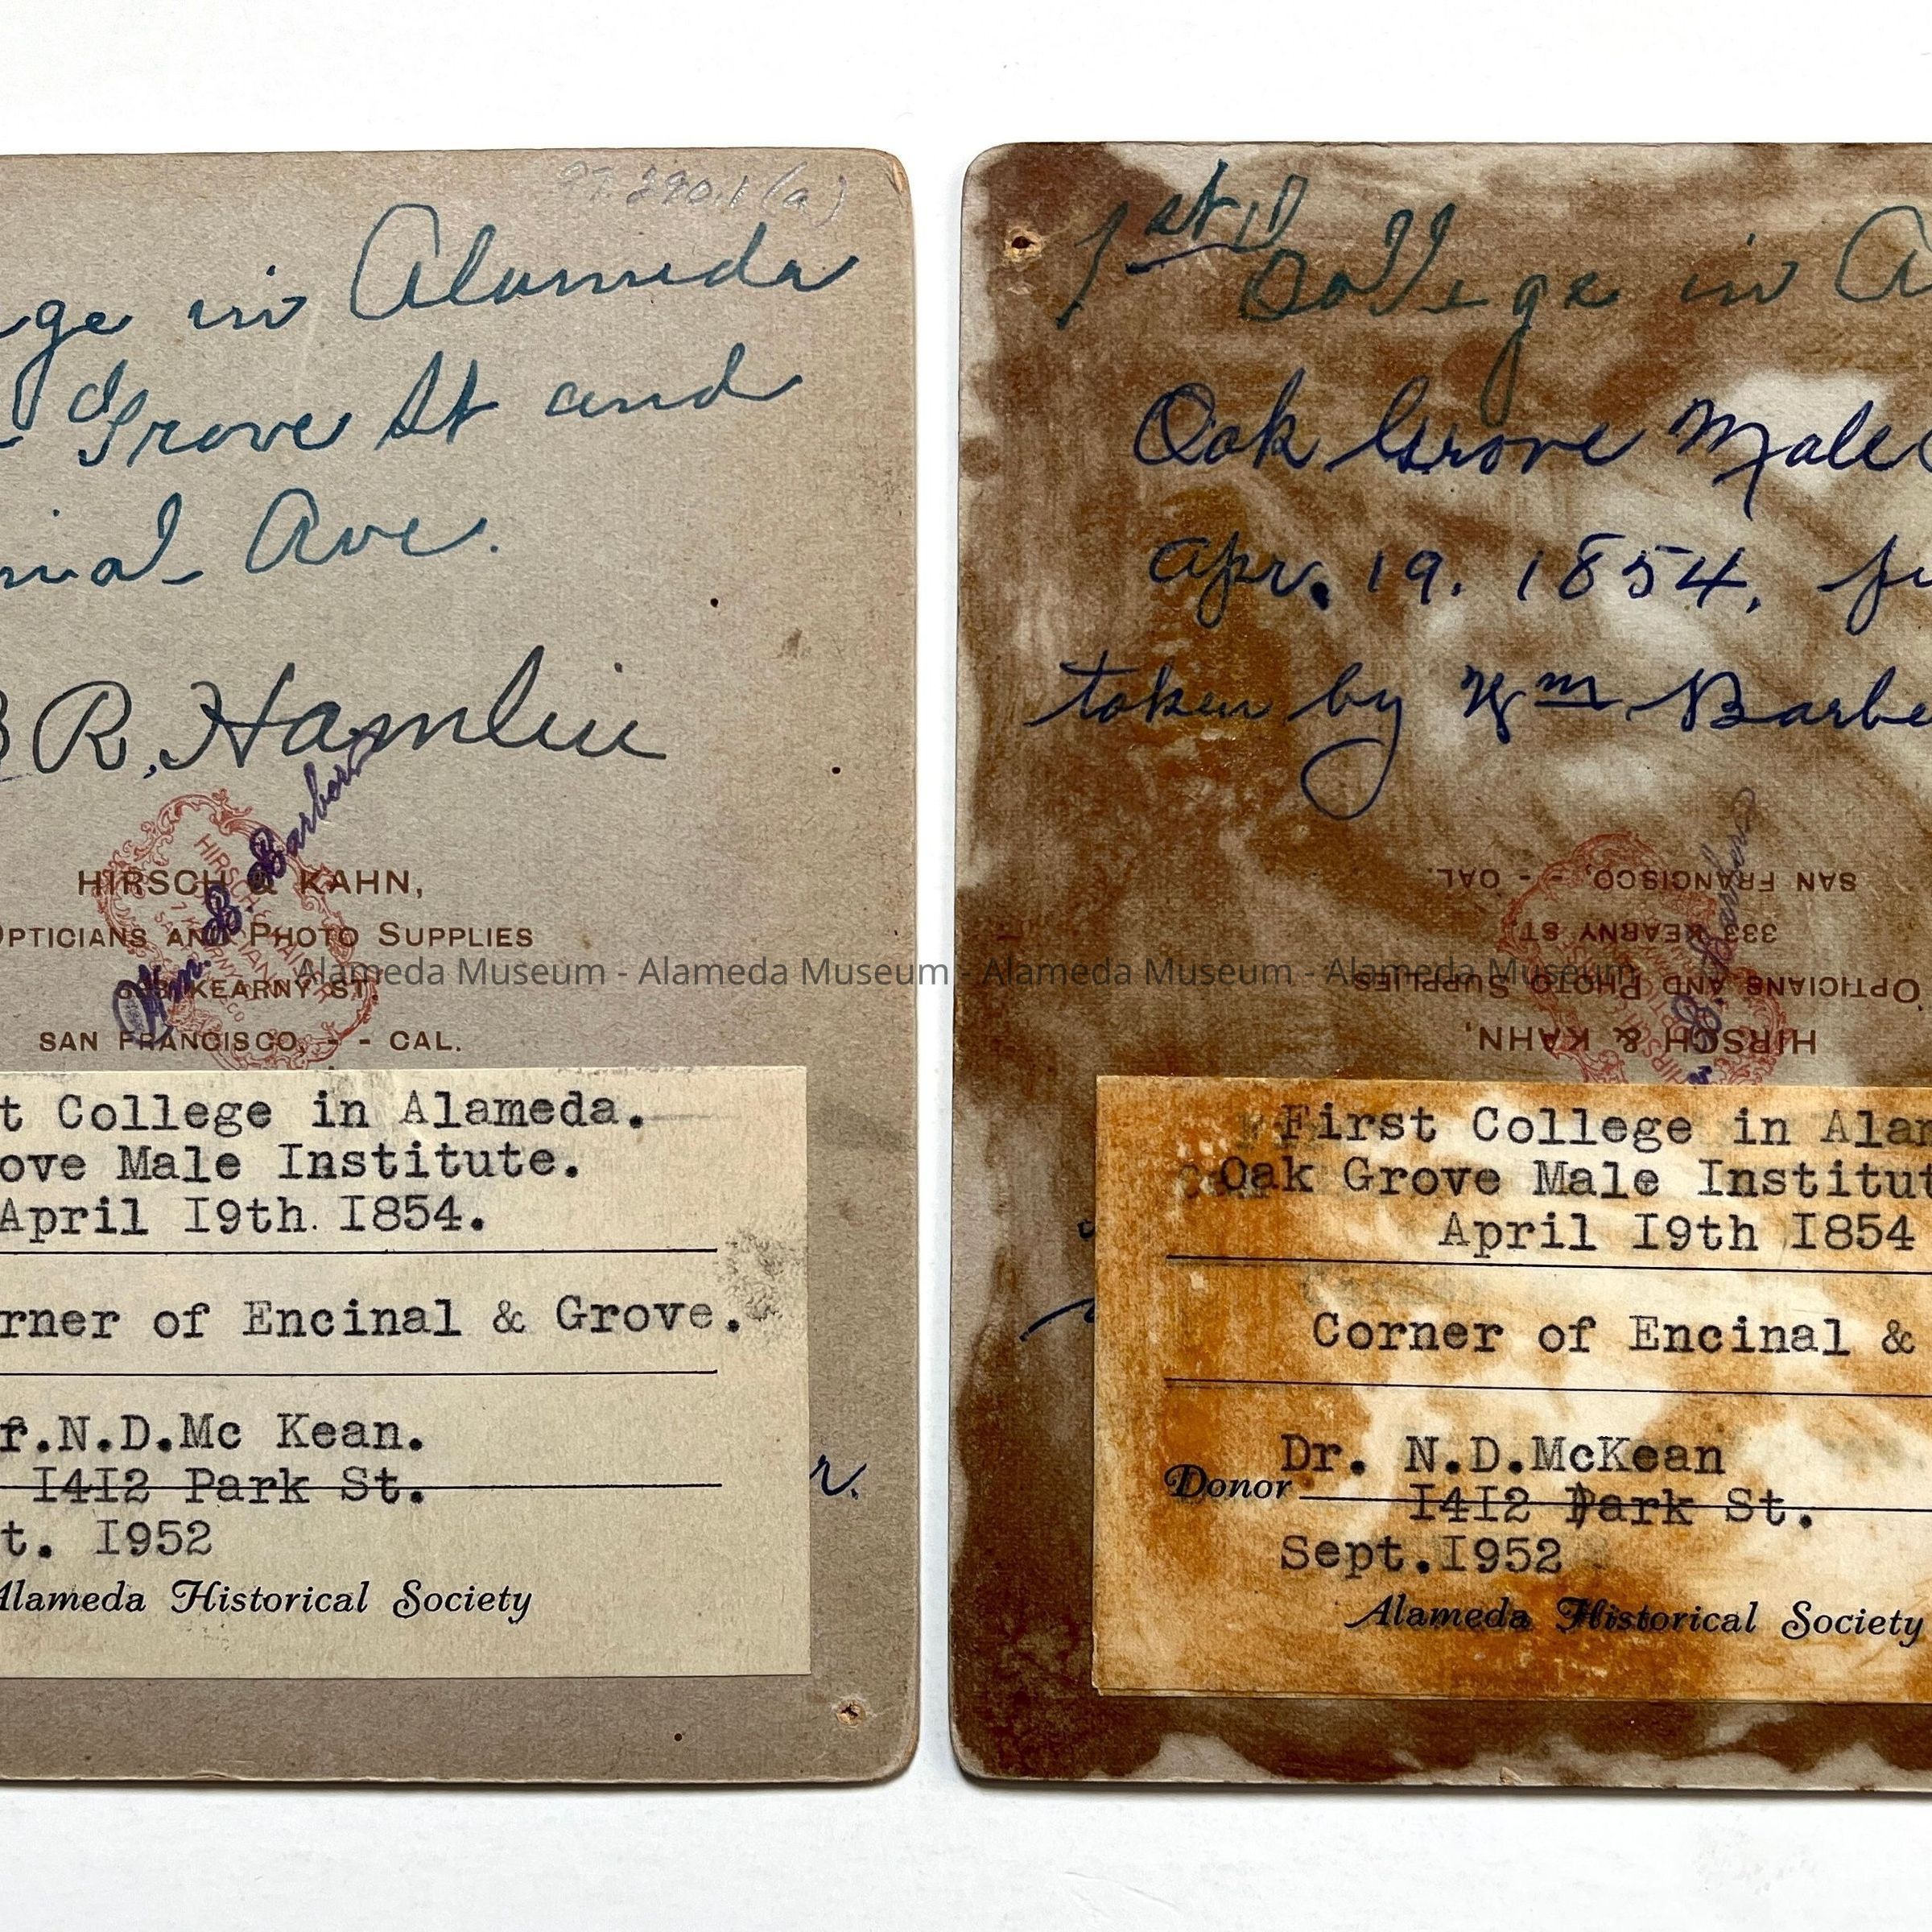 97.290.1(a)
ge in Alameda
Grove St and
nial Ave.
B R. Hamlin
Wm. B. Barbour
HIRSCH & KAHN,
OPTICIANS AND PHOTO SUPPLIES
333 KEARNY ST.
SAN FRANCISCO, - - CAL.
t College in Alameda.
ove Male Institute.
April I9th. I854.
rner of Encinal & Grove.
r.N.D.Mc Kean.
I4I2 Park St.
t. I952
Alameda Historical Society
r.
1st
College in A
Oak Grove Male
Apr. 19. 1854,
taken by Wm Barbe
HIRSCH & KAHN,
OPTICIANS AND PHOTO SUPPLIES
333 KEARNY ST
SAN FRANCISCO, - - CAL.
First College in Alam
Oak Grove Male Institut
April I9th I854
Corner of Encinal &
Dr. N.D.McKean
Donor
I4I2 Park St.
Sept.I952
Alameda Historical Society
Alameda Museum - Alameda Museum - Alameda Museum - Alameda Museum